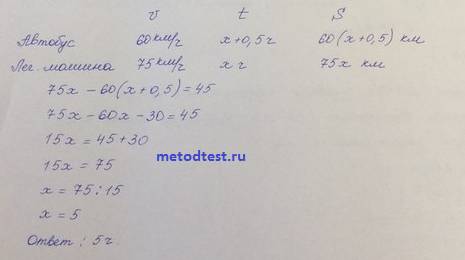 v t S
Автобус 60 км/ч x+0,5 ч 60(x+0,5) км
Лег. машина 75 км/ч x ч 75x км
75x − 60(x+0,5) = 45
75x − 60x − 30 = 45
15x = 45 + 30
15x = 75
metodtest.ru
x = 75 : 15
x = 5
Ответ : 5 ч.